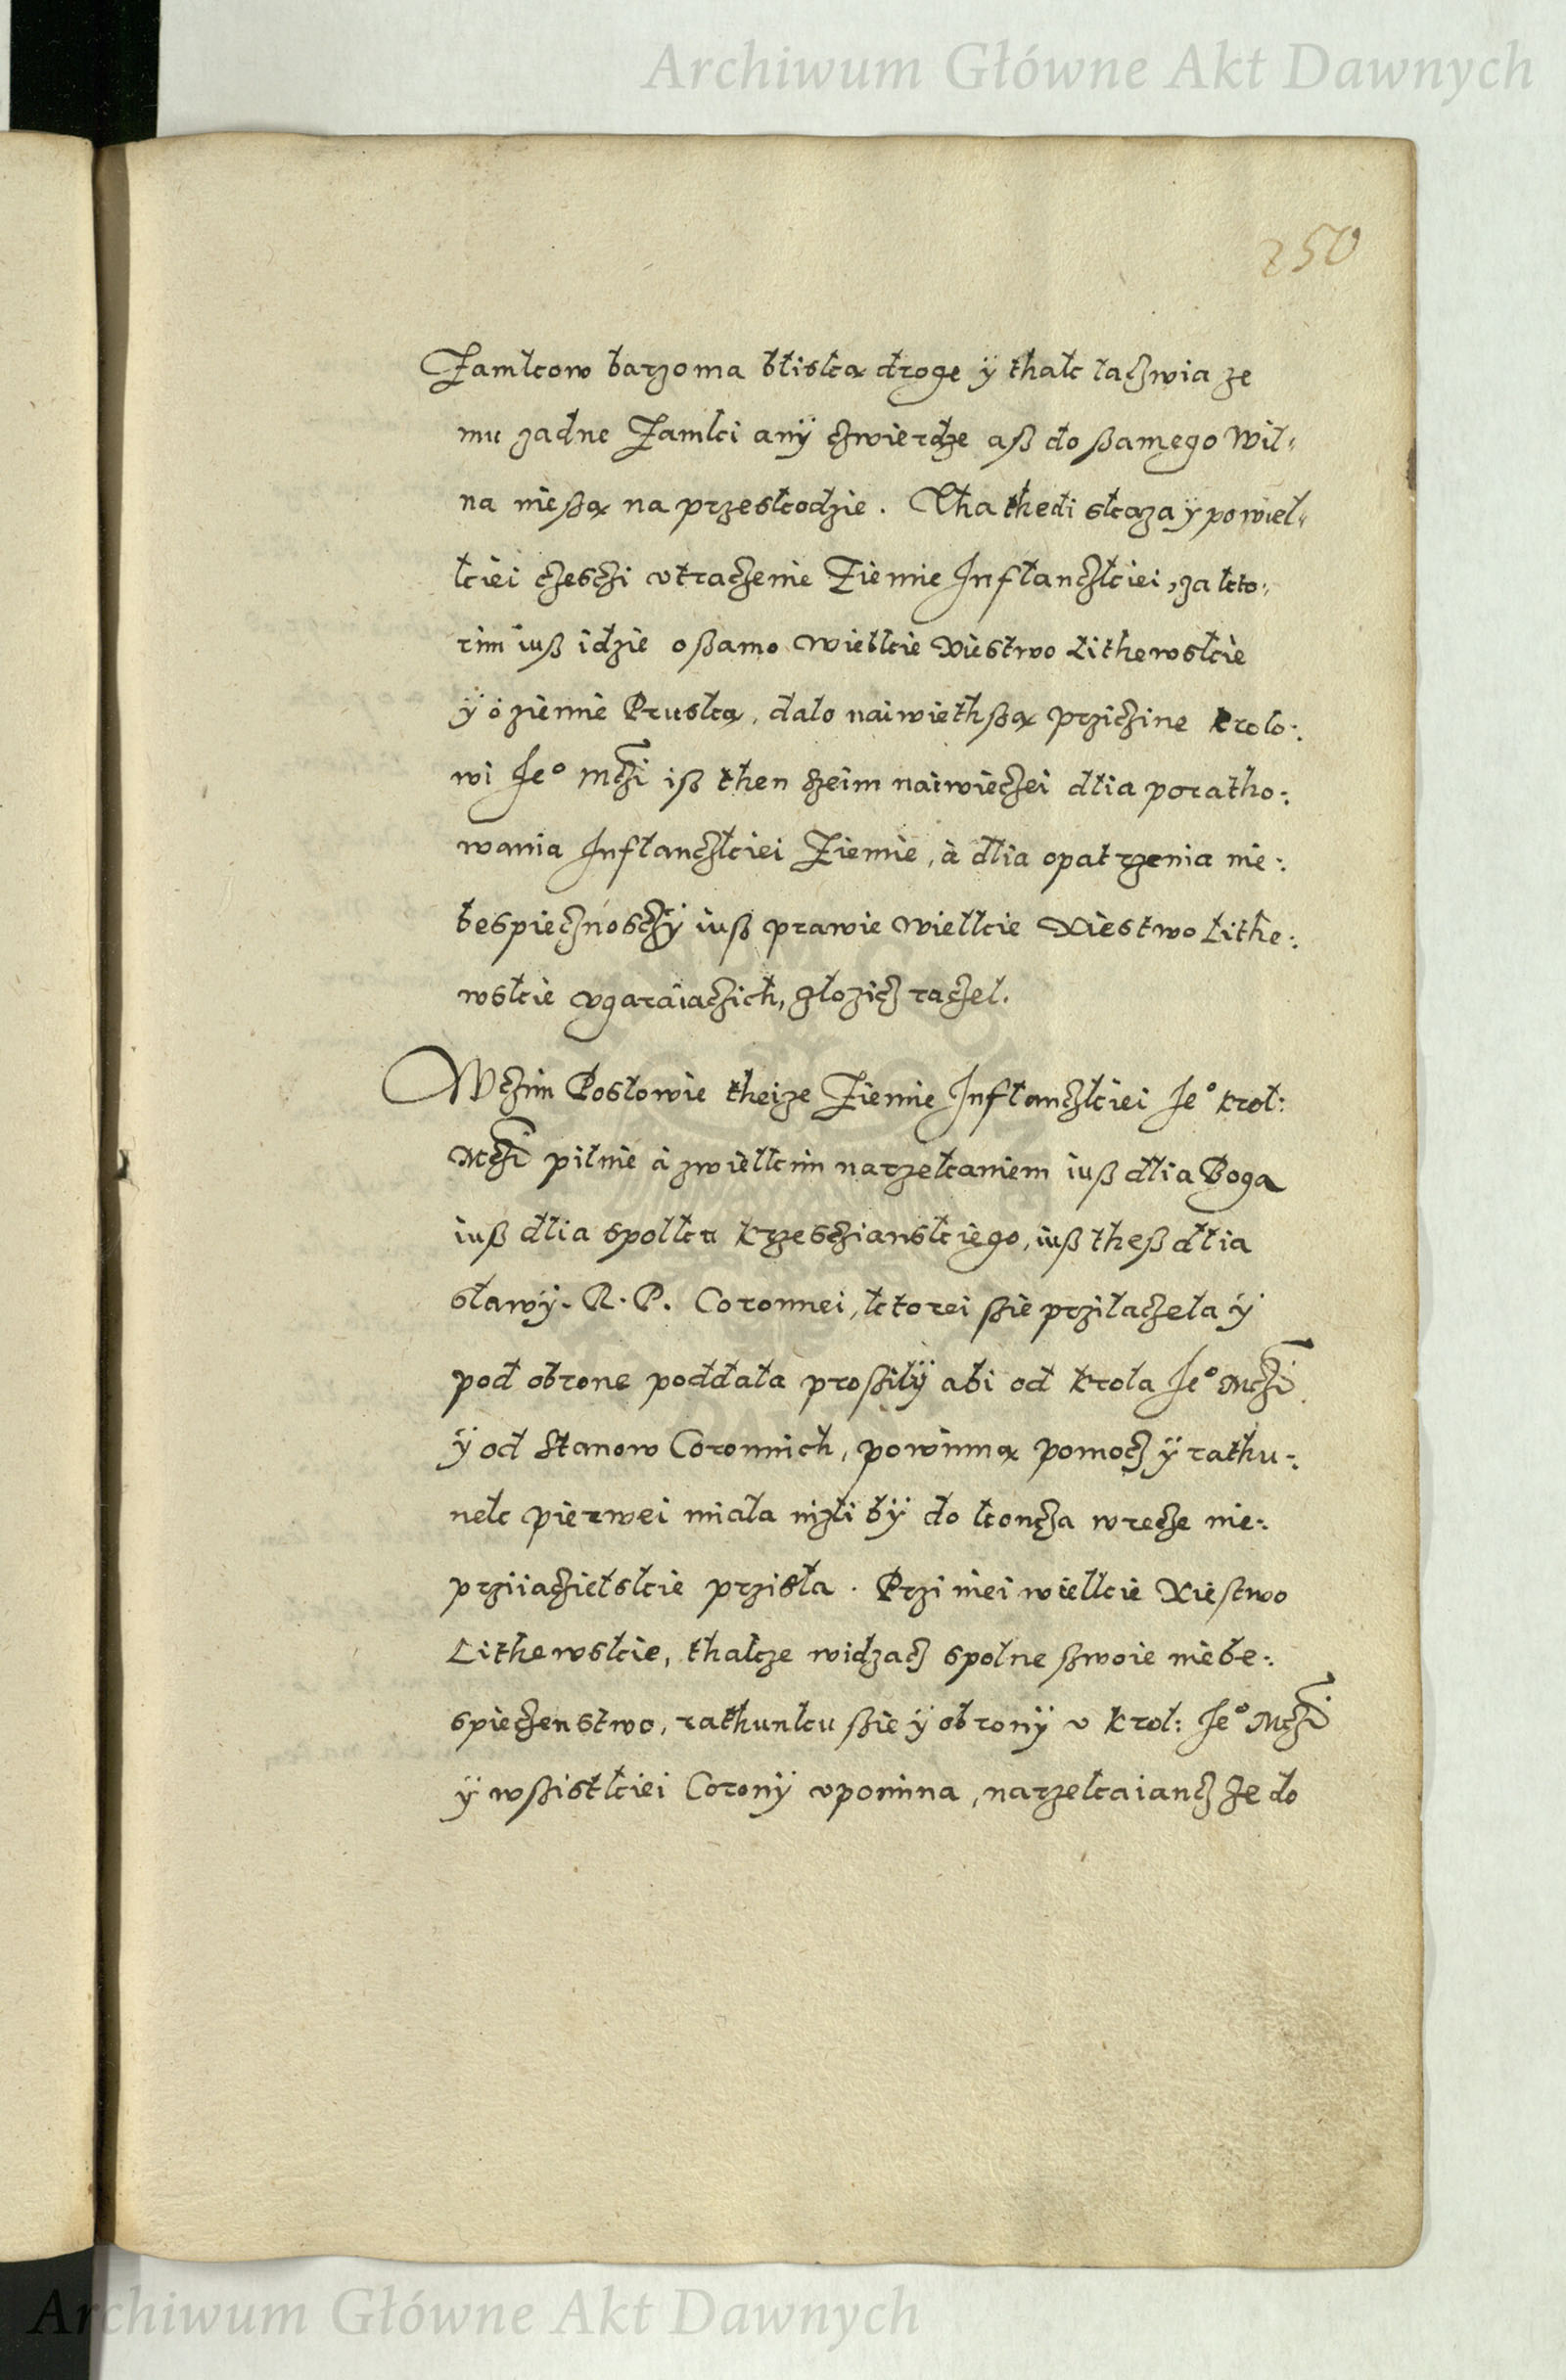 Archiwum Główne Akt Dawnych
250
Zamkow barzo ma bliską droge ÿ thak laczwia ze
mu zadne Zamki anÿ czwierdze aß do ßamego Wil-
na nie ßą na przeskodzie. Tha thedi skaza ÿ po wiel-
kiei czesczi utraczenie Ziemie Inflanczkiei, za kto-
rim iuß idzie o ßamo wielkie Xiestwo Lithewskie
ÿ o ziemie Pruską, dalo naiwiethßą prziczine krolo:
wi Ieº Mczi iß then szeim naiwieczei dlia poratho:
wania Inflanczkiei Ziemie, à dlia opatrzenia nie:
bespiecznosczÿ iuß prawie wielkie Xiestwo Lithe:
wskie ugaraiaczich, zlozicz raczel.
W czim Poslowie theize Ziemie Inflanczkiei Ieº krol:
Mczi pilnie à z wielkim narzekaniem iuß dlia Boga
iuß dlia spolku krzesczianskiego, iuß theß dlia
slawÿ. R. P. Coronnei, ktorei ßie przilaczela ÿ
pod obrone poddala proßilÿ abi od krola Ieº Mczi
ÿ od Stanow Coronnich, powinną pomocz ÿ rathu:
nek pierwei miala nizli bÿ do koncza w recze nie:
prziiaczielskie prisla. Przi niei wielkie Xiestwo
Lithewskie, thakze widzacz spolne ßwoie niebe:
spieczenstwo, rathunku ßie ÿ obronÿ u krol: Ieº Mczi
ÿ wßistkiei Coronÿ upomina, narzekaiancz ze do
Archiwum Główne Akt Dawnych